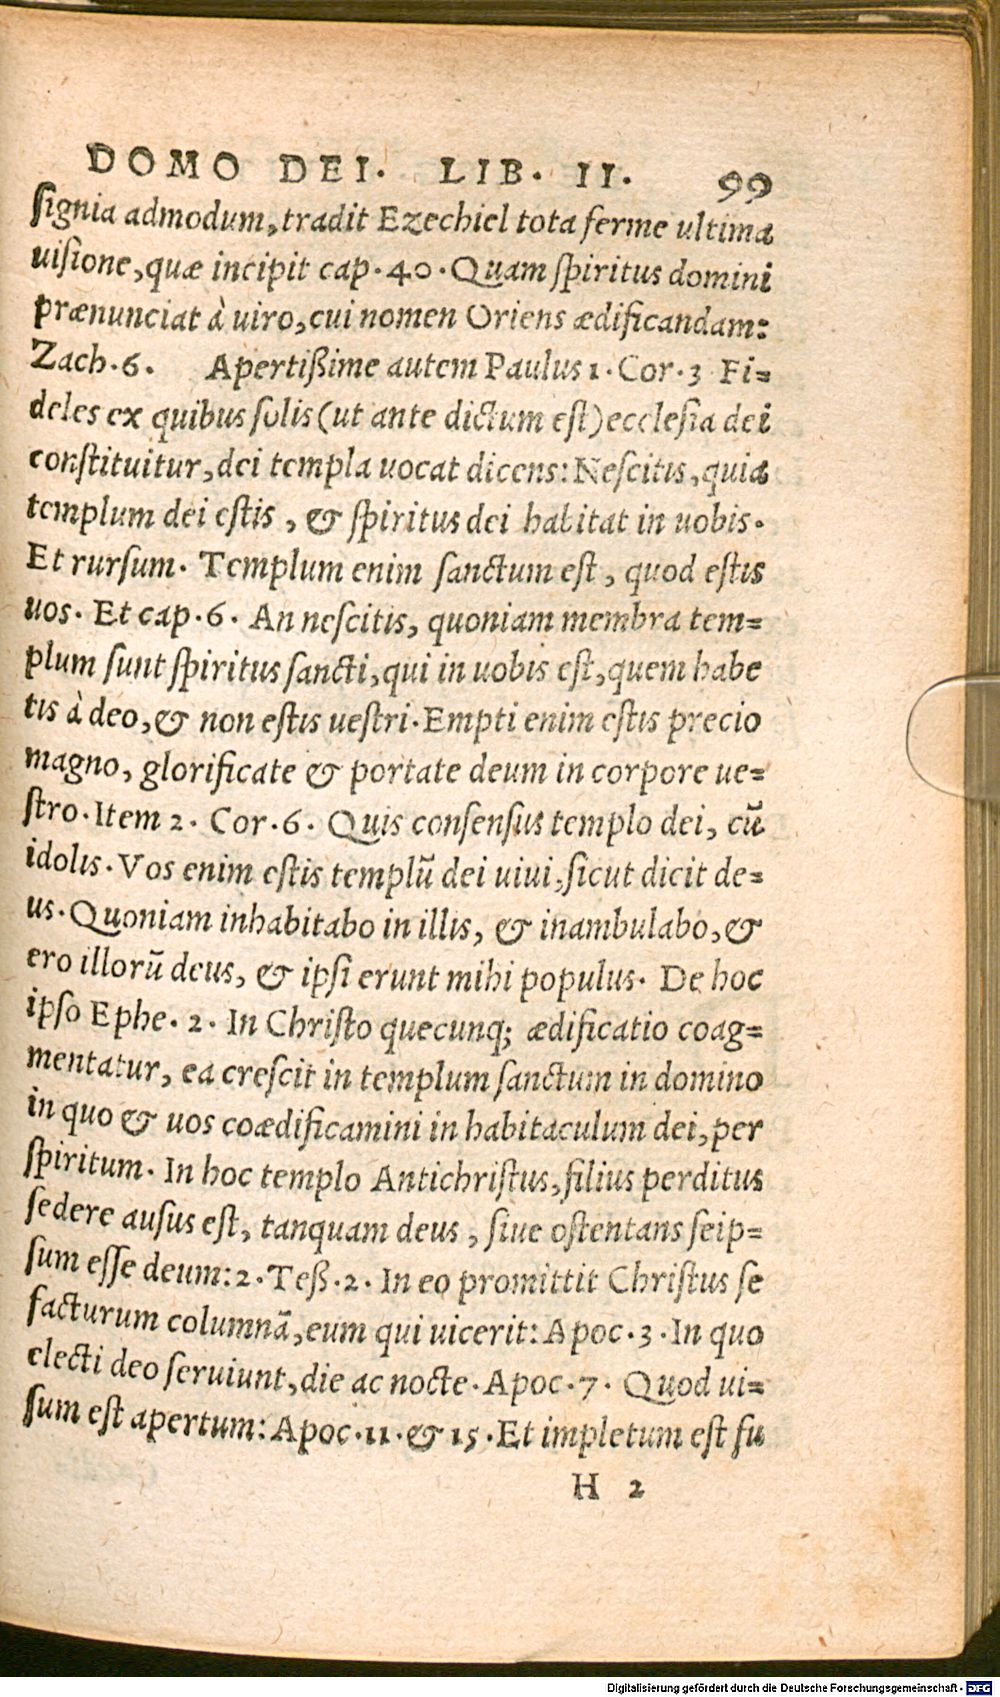 DOMO DEI. LIB. II. 99
ſignia admodum, tradit Ezechiel tota ferme ultima
uiſione, quæ incipit cap. 40. Quam ſpiritus domini
prænunciat à uiro, cui nomen Oriens ædificandam:
Zach. 6. Apertißime autem Paulus 1. Cor. 3 Fi=
deles ex quibus ſolis (ut ante dictum eſt) eccleſia dei
conſtituitur, dei templa uocat dicens: Neſcitis, quia
templum dei eſtis, & ſpiritus dei habitat in uobis.
Et rurſum. Templum enim ſanctum eſt, quod eſtis
uos. Et cap. 6. An neſcitis, quoniam membra tem=
plum ſunt ſpiritus ſancti, qui in uobis eſt, quem habe
tis à deo, & non eſtis ueſtri. Empti enim eſtis precio
magno, glorificate & portate deum in corpore ue=
ſtro. Item 2. Cor. 6. Quis conſenſus templo dei, cũ
idolis. Vos enim eſtis templũ dei uiui, ſicut dicit de=
us. Quoniam inhabitabo in illis, & inambulabo, &
ero illorũ deus, & ipſi erunt mihi populus. De hoc
ipſo Ephe. 2. In Chriſto quecunq; ædificatio coag=
mentatur, ea creſcit in templum ſanctum in domino
in quo & uos coædificamini in habitaculum dei, per
ſpiritum. In hoc templo Antichriſtus, filius perditus
ſedere auſus eſt, tanquam deus, ſiue oſtentans ſeip=
ſum eſſe deum: 2. Teß. 2. In eo promittit Chriſtus ſe
facturum columnã, eum qui uicerit: Apoc. 3. In quo
electi deo ſeruiunt, die ac nocte. Apoc. 7. Quod ui=
ſum eſt apertum: Apoc. 11. & 15. Et impletum eſt fu
H 2
Digitalisierung gefördert durch die Deutsche Forschungsgemeinschaft - DFG